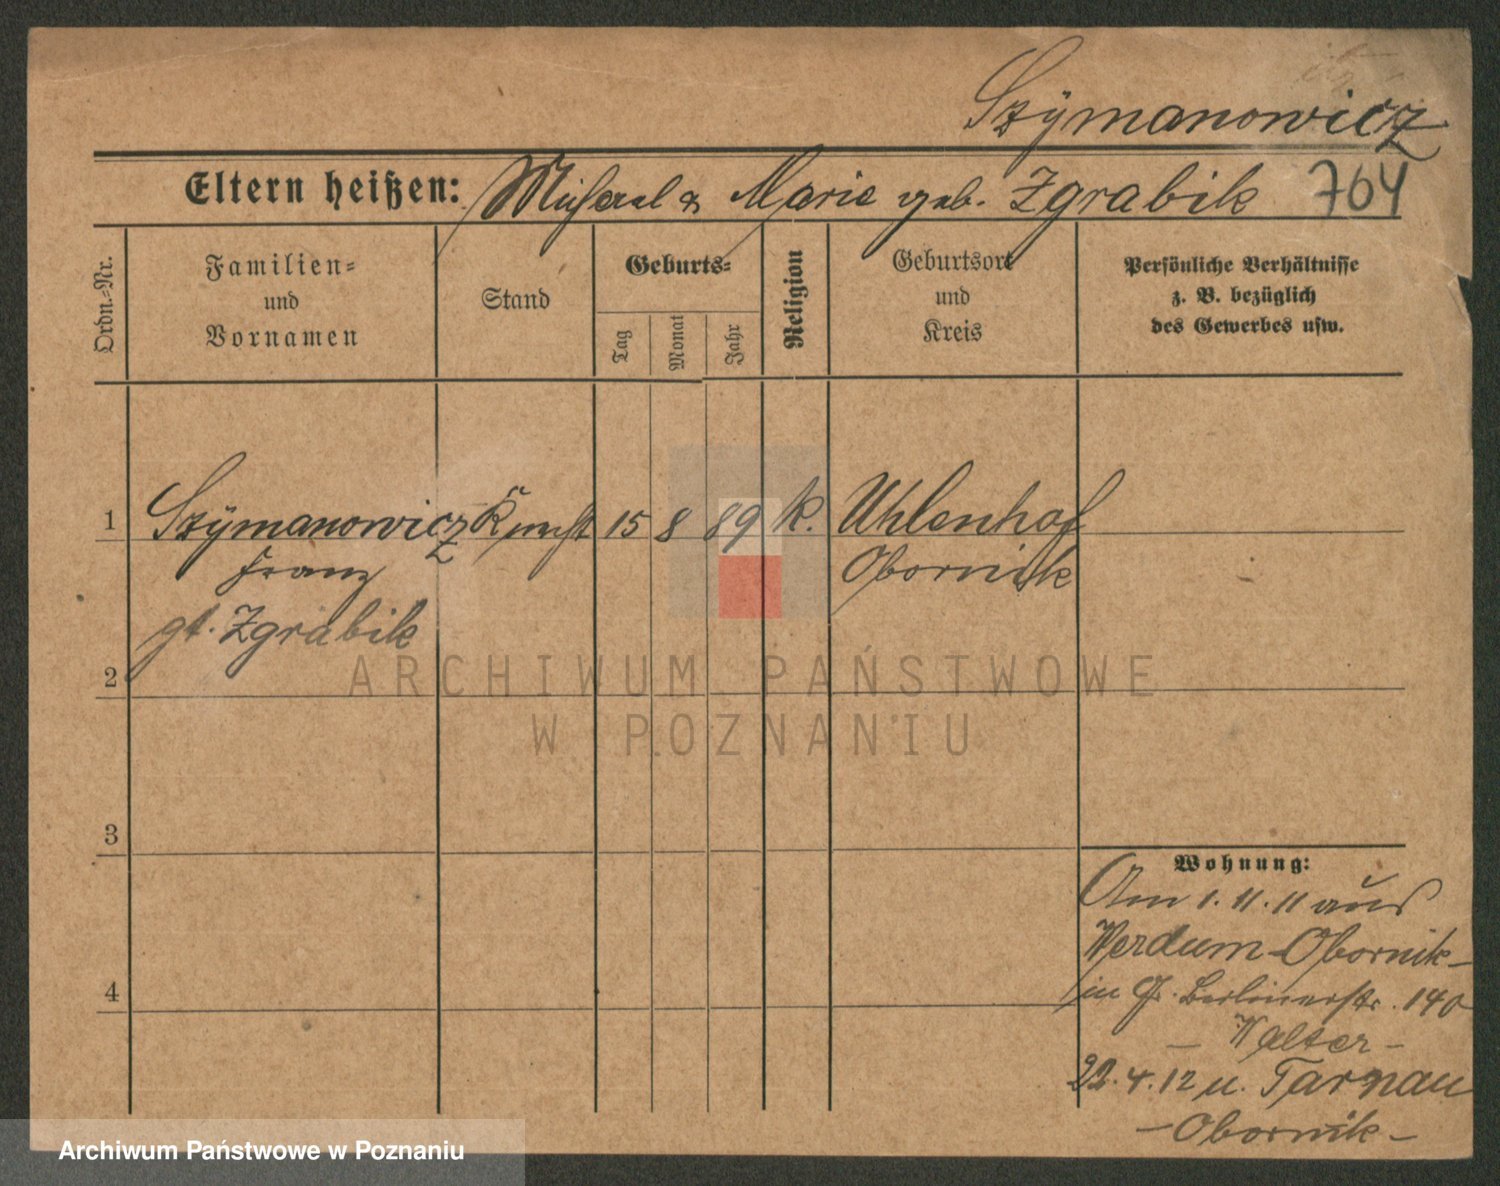 Szÿmanowicz
Eltern heißen: Michael & Marie geb. Zgrabik 764
Ordn.-Nr.
Familien-
und
Vornamen
Stand
Geburts-
Tag
Monat
Jahr
Religion
Geburtsort
und
Kreis
Persönliche Verhältnisse
z. B. bezüglich
des Gewerbes usw.
1 Szÿmanowicz 15 8 89 k. Uhlenhof
Franz Obornik
gt. Zgrabik
2
3
4
Wohnung:
Am 1.11.11 aus
Werdum-Obornik-
in G. Berlinerstr. 140
- Walter -
22.4.12 n. Tarnau
- Obornik -
ARCHIWUM PAŃSTWOWE
W POZNANIU
Archiwum Państwowe w Poznaniu